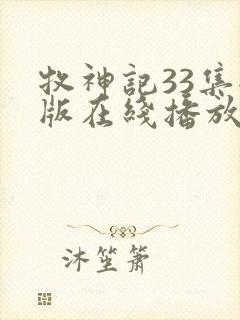 牧神记33集
版在线播放
沐笙箫